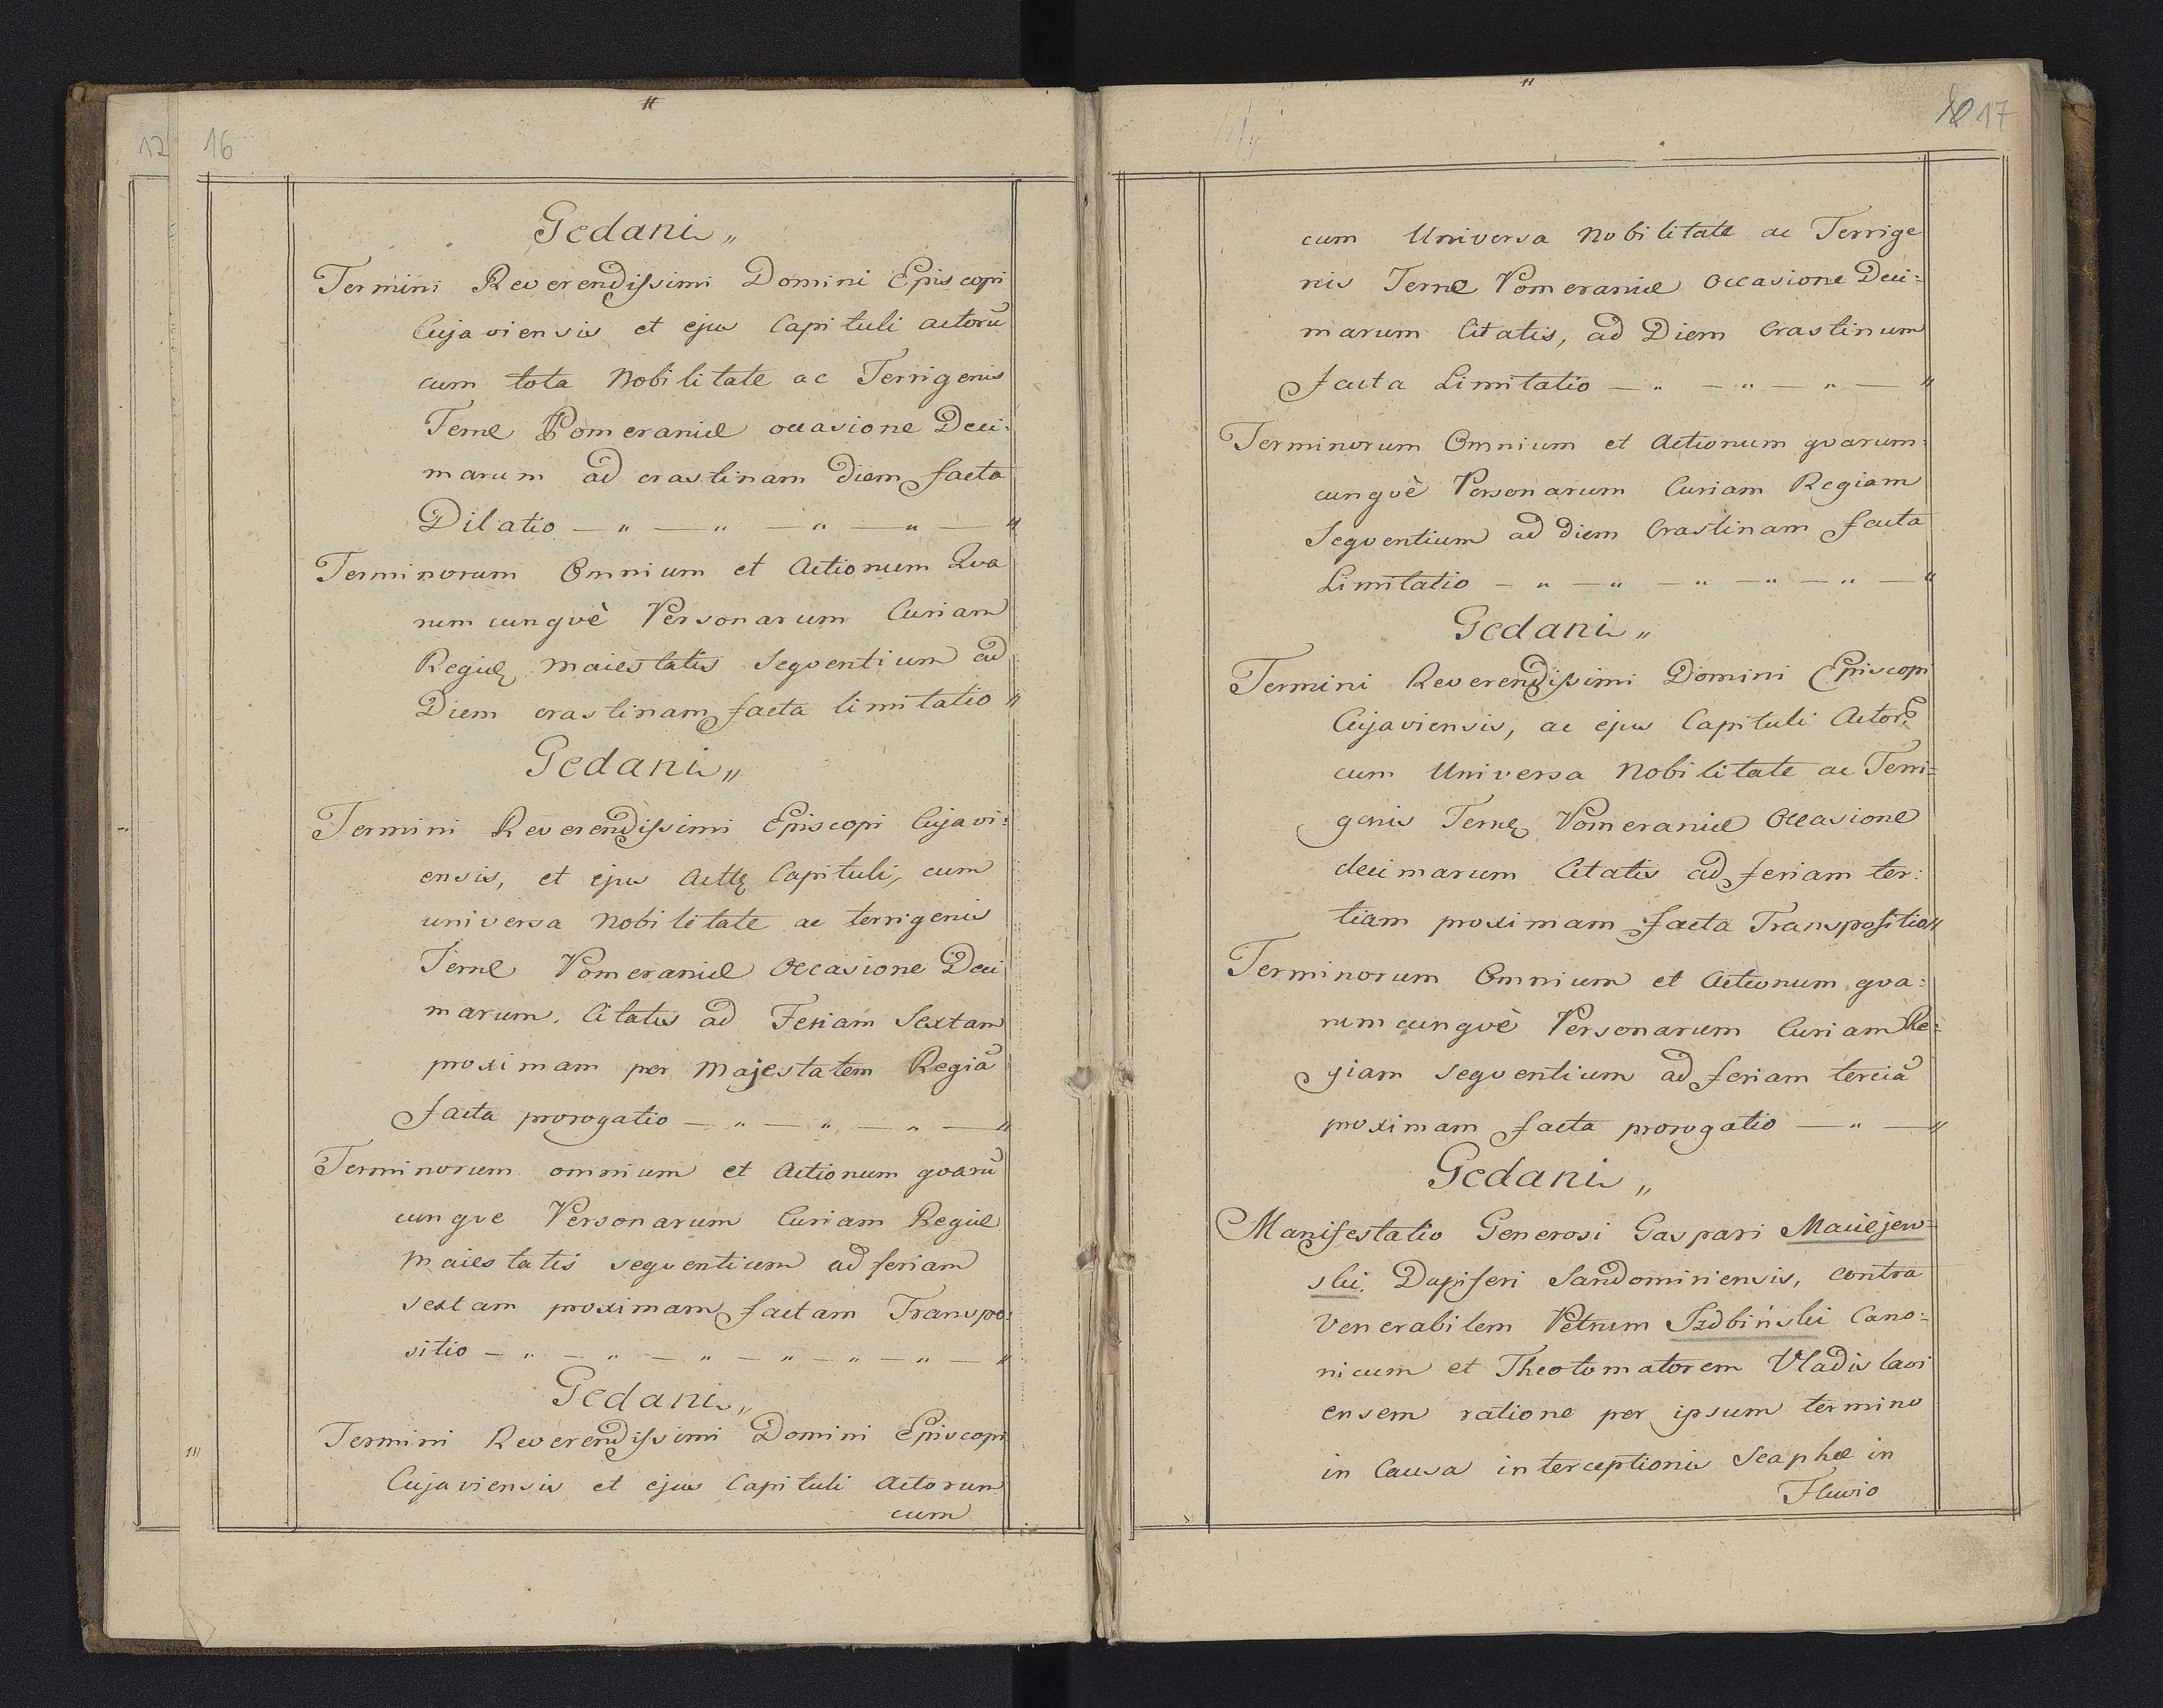 12
16
Gedani „
Termini Reverendissimi Domini Episcopi
Cujaviensis et ejus Capituli actorū
cum tota Nobilitate ac Terrigenis
Terræ Pomeraniæ occasione Deci:
marum ad crastinam diem facta
Dilatio — „ — „ — „ — „ — „
Terminorum Omnium et Actionum Qua
rum cunqvè Personarum Curiam
Regiæ Maiestatis Seqventium ad
Diem crastinam facta limitatio „
Gedani „
Termini Reverendissimi Episcopi Cujavi:
ensis, et ejus Capituli, cum
universa Nobilitate ac terrigenis
Terræ Pomeraniæ Occasione Deci
marum. Citatis ad Feriam Sextam
proximam per Majestatem Regiā
facta prorogatio — „ — „ — „ — „
Terminorum omnium et Actionum qvarū
cunqve Personarum Curiam Regiæ
Maiestatis seqventium ad feriam
sextam proximam factam Transpo:
sitio — „ — „ — „ — „ — „ — „ — „
Gedani „
Termini Reverendissimi Domini Episcopi
Cujaviensis et ejus Capituli Actorum
cum
17
cum Universa Nobilitate ac Terrige
nis Terræ Pomeraniæ Occasione Deci:
marum Citatis, ad Diem Crastinum
facta Limitatio — „ — „ — „ — „
Terminorum Omnium et Actionum qvarum:
cunqvè Personarum Curiam Regiam
Seqventium ad diem Crastinam facta
Limitatio — „ — „ — „ — „ — „ — „
Gedani „
Termini Reverendissimi Domini Episcopi
Cujaviensis, ac ejus Capituli
cum Universa Nobilitate ac Terri=
genis Terræ Pomeraniæ Occasione
decimarum Citatis ad feriam ter:
tiam proximam facta Transpositio „
Terminorum Omnium et Actionum qva:
rum cunqvè Personarum Curiam Re:
giam seqventium ad feriam terciā
proximam facta prorogatio — „ — „
Gedani „
Manifestatio Generosi Gaspari Maciejew=
ski. Dapiferi Sandomiriensis, contra
Venerabilem Petrum Izdbiński Cano:
nicum et Theotomatorem Vladislavi
ensem ratione per ipsum termino
in Causa interceptionis Scaphæ in
Fluvio